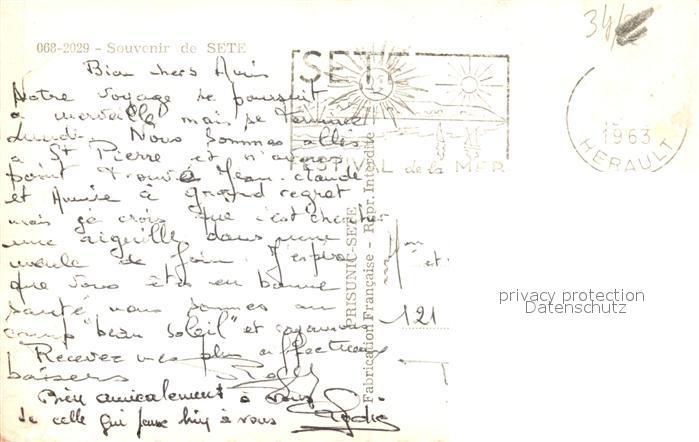 34/
068-2029 - Souvenir de SETE
SETE
FESTIVAL de la MER
1963
HERAULT
Bien chers Amis
Notre voyage se poursuit
à merveille mais se termine
Lundi. Nous sommes allés
à St Pierre et n'avons
point trouvé Jean-Claude
et Annie à grand regret
mais je crois que c'est chercher
une aiguille dans une
meule de foin. J'espère
que vous êtes en bonne
santé nous sommes au
camp "beau soleil" et
Recevez mes plus affectueux
baisers
Bien amicalement à vous
de celle qui pense bien à vous
PRISUNIC-SETE
Fabrication Française - Repr. Interdite
121
privacy protection
Datenschutz